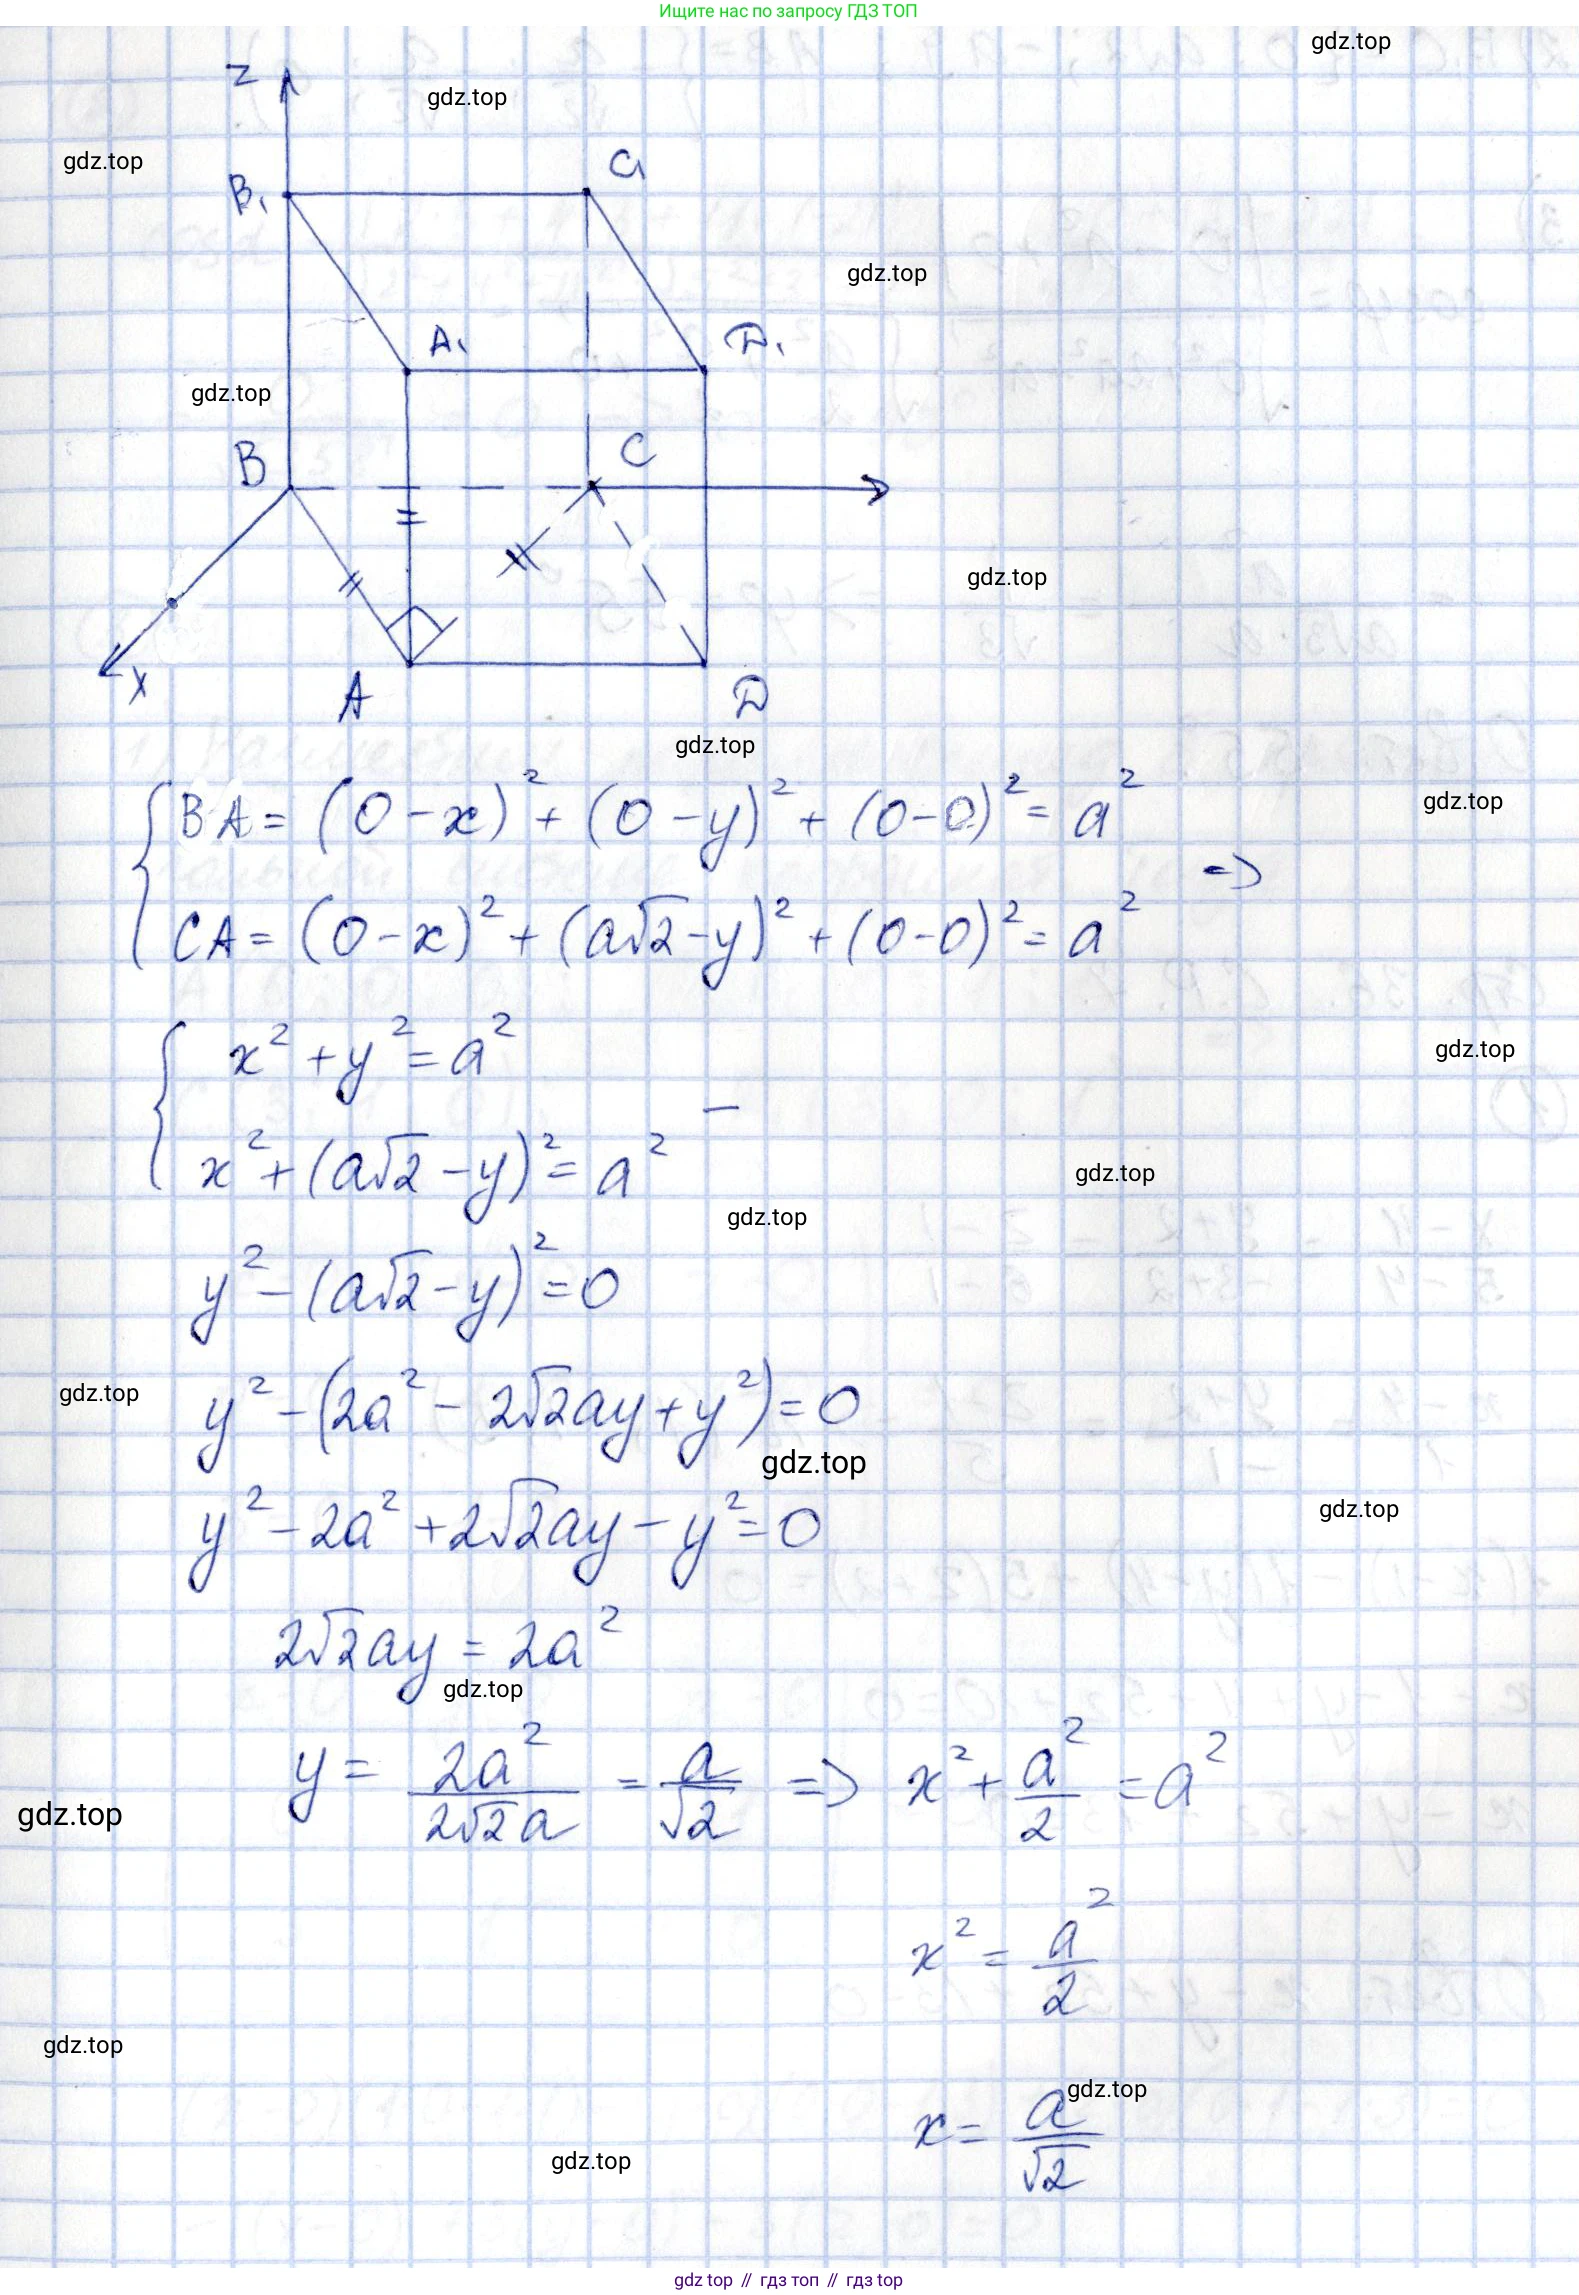 Ищите нас по запросу ГДЗ ТОП
gdz.top
z
gdz.top
gdz.top
B₁
C₁
gdz.top
A₁
D₁
gdz.top
B
C
gdz.top
x
A
D
gdz.top
BA = (0 - x)² + (0 - y)² + (0 - 0)² = a²
gdz.top
⇒
CA = (0 - x)² + (a√2 - y)² + (0 - 0)² = a²
x² + y² = a²
gdz.top
−
x² + (a√2 - y)² = a²
gdz.top
gdz.top
y² - (a√2 - y)² = 0
gdz.top
y² - (2a² - 2√2ay + y²) = 0
gdz.top
gdz.top
y² - 2a² + 2√2ay - y² = 0
2√2ay = 2a²
gdz.top
y = 2a²/2√2a = a/√2 ⇒ x² + a²/2 = a²
gdz.top
x² = a²/2
gdz.top
gdz.top
x = a/√2
gdz.top
gdz top // гдз топ // гдз top